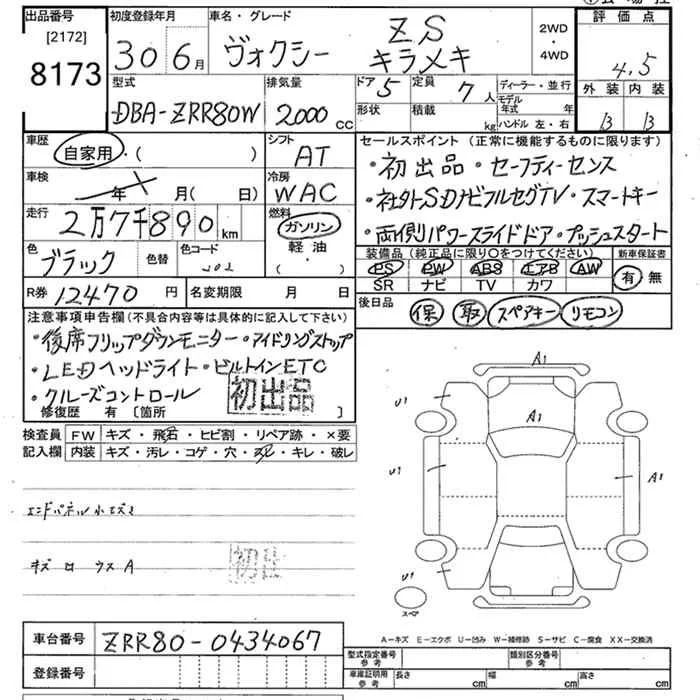 出品番号
[2172]
8173
初度登録年月
30 6月
車名・グレード
ヴォクシー
ZS
キラメキ
2WD
・
4WD
評価点
4.5
型式
DBA-ZRR80W
排気量
2000 cc
ドア 5
定員 7人
形状
積載 kg
ディーラー・並行
モデル年式 年
ハンドル 左・右
外装 内装
B B
車歴
自家用・( )
シフト
AT
車検
年 月(日)
冷房
WAC
走行
2万7千890km
燃料
ガソリン・
軽油・
色
ブラック
色替
色コード
202
R券 12470 円
名変期限 月 日
セールスポイント(正常に機能するものに限ります)
・初出品・セーフティーセンス
・社外SDナビフルセグTV・スマートキー
・両側パワースライドドア・プッシュスタート
装備品(純正品に限り○をつけてください)
新車保証書
PS PW ABS エアB AW
SR ナビ TV カワ
有・無
後日品
保 取 スペアキー リモコン
注意事項申告欄(不具合内容等は具体的に記入して下さい)
・後席フリップダウンモニター・アイドリングストップ
・LEDヘッドライト・ビルトインETC
・クルーズコントロール
初出品
修復歴 有〔箇所 〕
検査員 FW キズ・飛石・ヒビ割・リペア跡・×要
記入欄 内装 キズ・汚レ・コゲ・穴・スレ・キレ・破レ
エンドパネル小エクボ
キズ ロ ウス A
A1
U1
A1
U1
A1
U1
スペア
A-キズ E-エクボ U-凹み W-補修跡 S-サビ C-腐食 XX-交換済
車台番号 ZRR80-0434067
登録番号
型式指定番号
参考
類別区分番号
参考
車庫証明用
参考
長さ cm
幅 cm
高さ cm